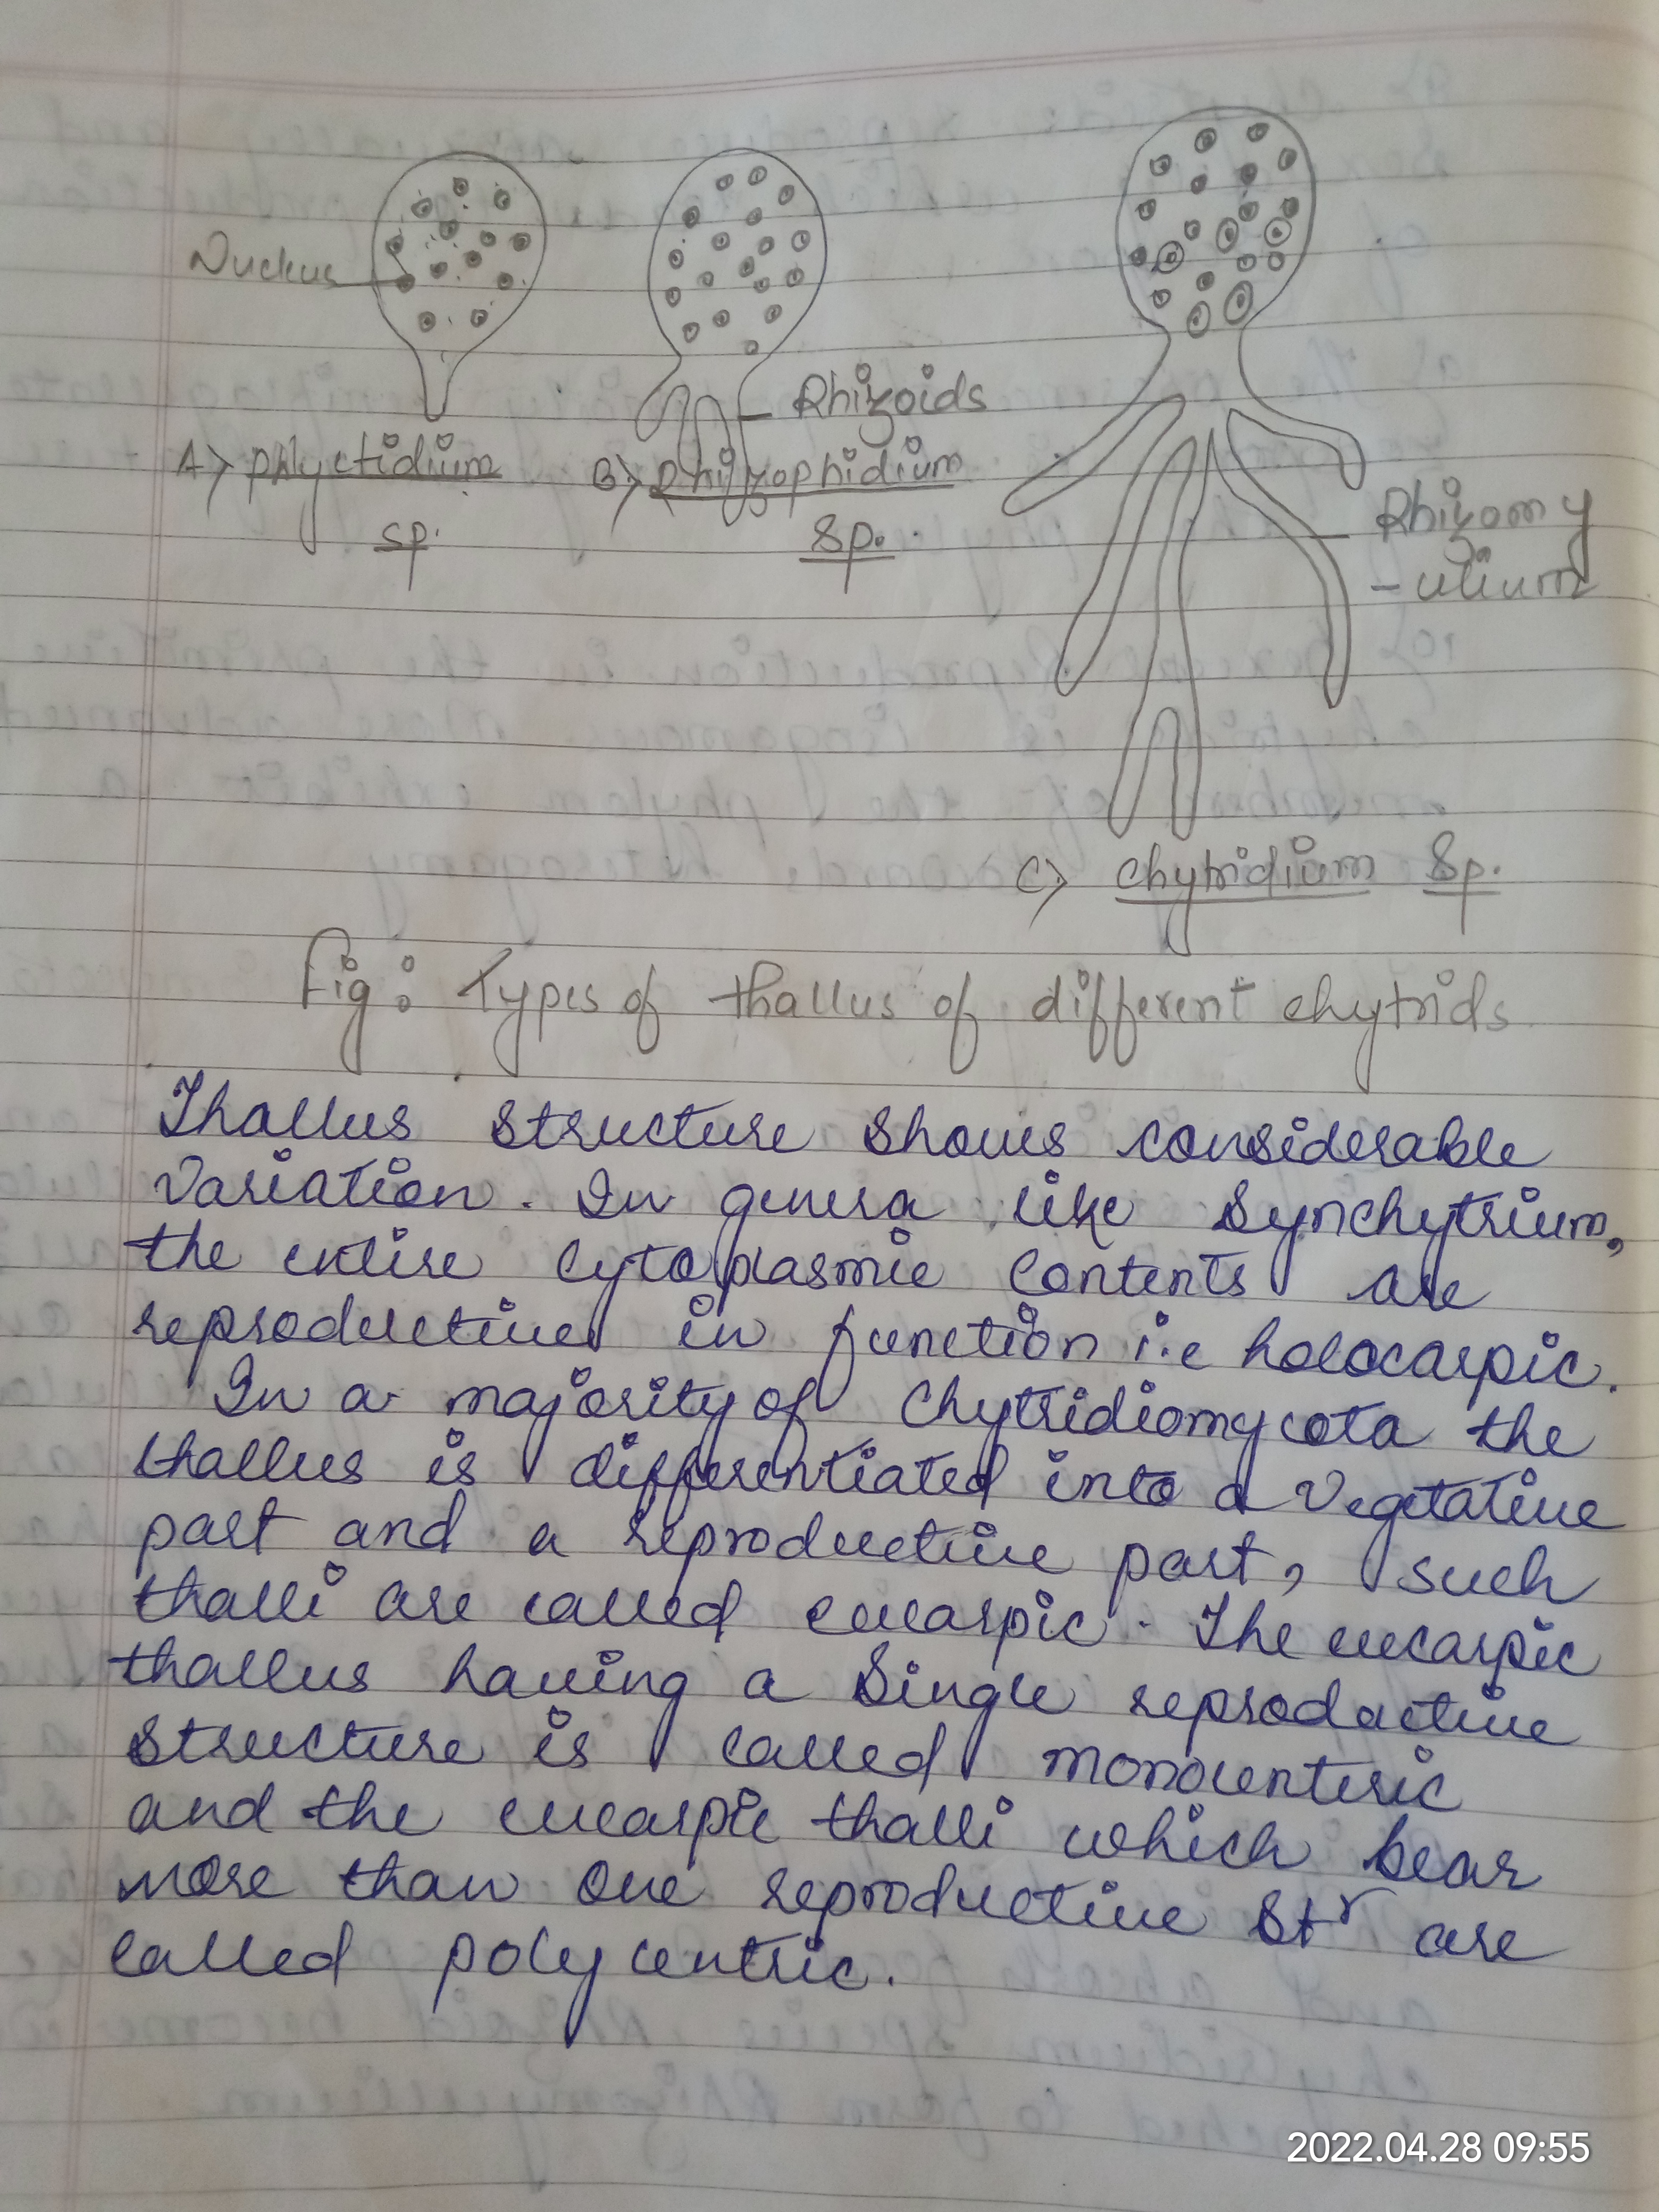 Nucleus
Rhizoids
A) Phlyctidium sp.
B) Rhizophidium sp.
Rhizomy
-celium
C) Chytridium sp.
Fig: Types of thallus of different chytrids
Thallus structure shows considerable
variation. In genera like Synchytrium,
the entire cytoplasmic contents are
reproductive in function i.e holocarpic.
In a majority of Chytridiomycota the
thallus is differentiated into a vegetative
part and a reproductive part, such
thalli are called eucarpic. The eucarpic
thallus having a single reproductive
structure is called monocentric
and the eucarpic thalli which bear
more than one reproductive str are
called polycentric.
2022.04.28 09:55